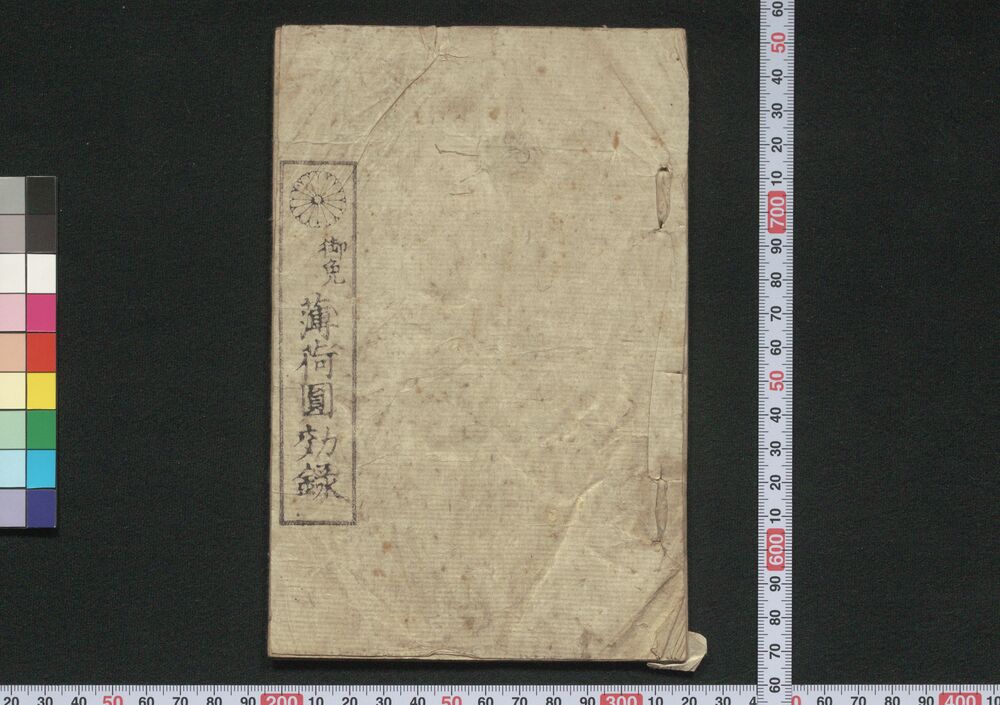 御免
薄荷圓効録
60
50
40
30
20
10
700
90
80
70
60
50
40
30
20
10
600
90
80
70
60
20 30 40 50 60 70 80 90 200 10 20 30 40 50 60 70 80 90 300 10 20 30 4
0 60 70 80 90 400 10